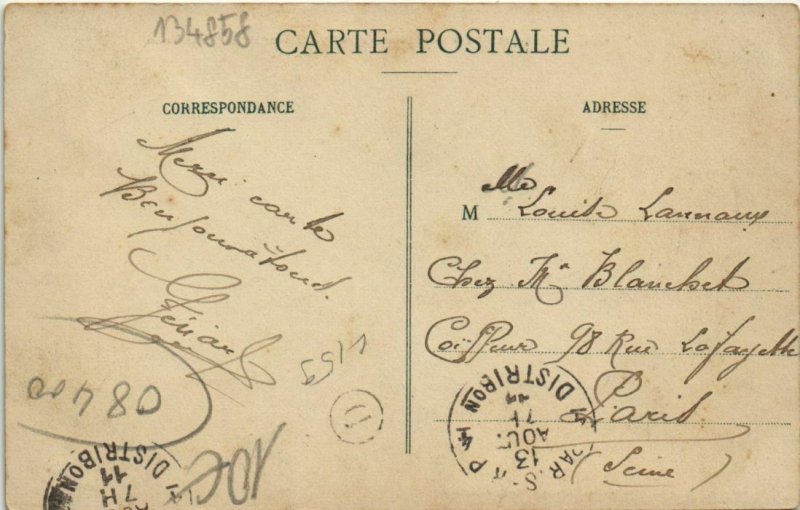 134858
CARTE POSTALE
CORRESPONDANCE
ADRESSE
Merci carte
Bonjour à tous.
Mlle
M Louise Lannaux
Chez Mr Blanchet
Coiffeur 98 Rue Lafayette
Paris
(Seine)
08400
1159
D
10€
DISTRIBON
PARIS
13
AOUT
11
DISTRIBON
11
7 H